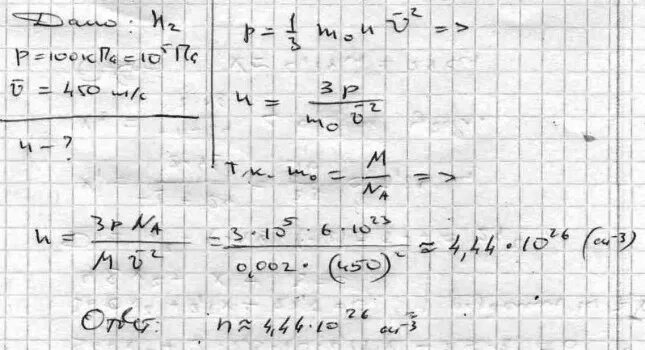 Дано: H₂
p = 100 кПа = 10⁵ Па
v̄ = 450 м/с
n - ?
p = 1/3 m₀ n v̄² =>
n = 3p / m₀ v̄²
т.к. m₀ = M / N_A =>
n = 3p N_A / M v̄² = 3·10⁵·6·10²³ / 0,002·(450)² ≈ 4,44·10²⁶ (м⁻³)
Ответ: n ≈ 4,44·10²⁶ м⁻³